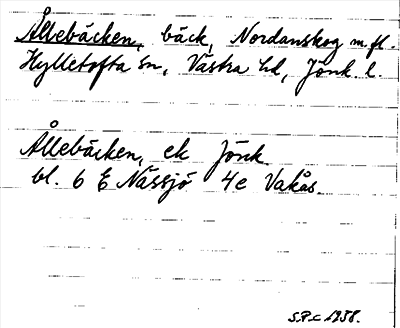 Ållebäcken, bäck, Nordanskog m.fl.
Hylletofta sn, Västra hd, Jönk. l.
Ållebäcken, ek Jönk.
bl. 6 E Nässjö 4e Vakås.
S.P.C 1938.